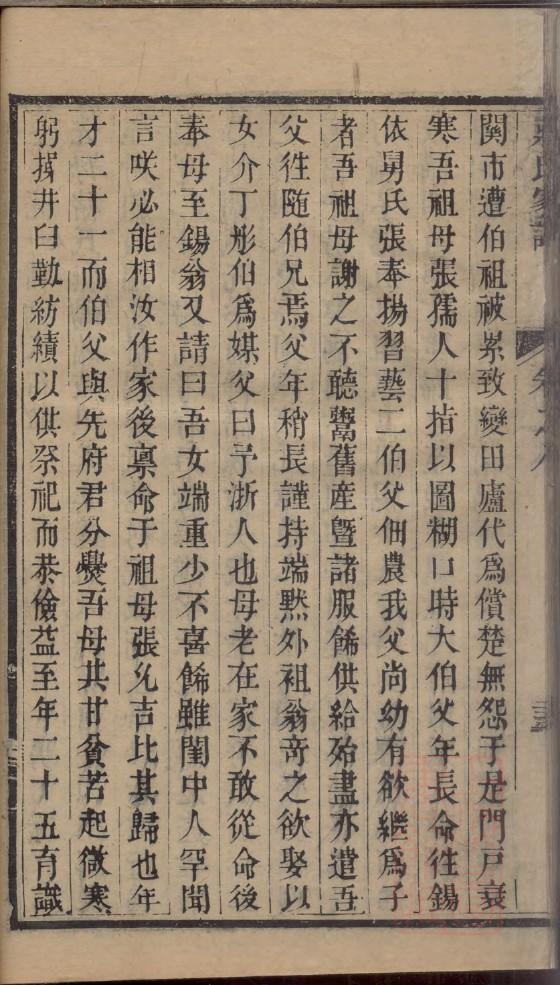 氏家譜
卷之八
關市遭伯祖被累致變田廬代爲償楚無怨于是門戸衰
寒吾祖母張孺人十指以圖糊口時大伯父年長命徃錫
依舅氏張奉揚習藝二伯父佃農我父尚幼有欲繼爲子
者吾祖母謝之不聽鬻舊産曁諸服餙供給殆盡亦遣吾
父徃随伯兄焉父年稍長謹持端黙外祖翁竒之欲娶以
女介丁彤伯爲媒父曰予浙人也母老在家不敢從命後
奉母至錫翁又請曰吾女端重少不喜餙雖閨中人罕聞
言咲必能相汝作家後禀命于祖母張允吉比其歸也年
才二十一而伯父與先府君分爨吾母其甘貧苦起微寒
躬操井臼勤紡績以供祭祀而恭儉益至年二十五育識